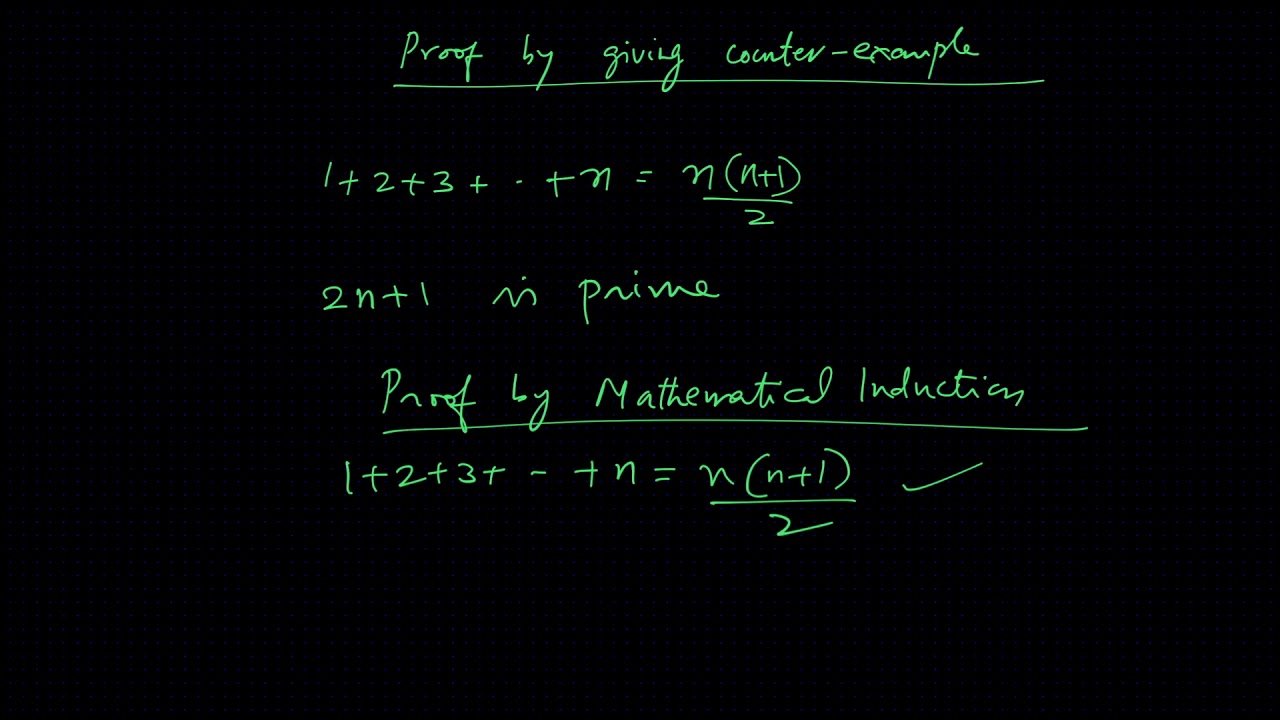 Proof by giving counter-example
1+2+3+ . +n = n(n+1)/2
2n+1 is prime
Proof by Mathematical Induction
1+2+3+ - +n = n(n+1)/2 ✓